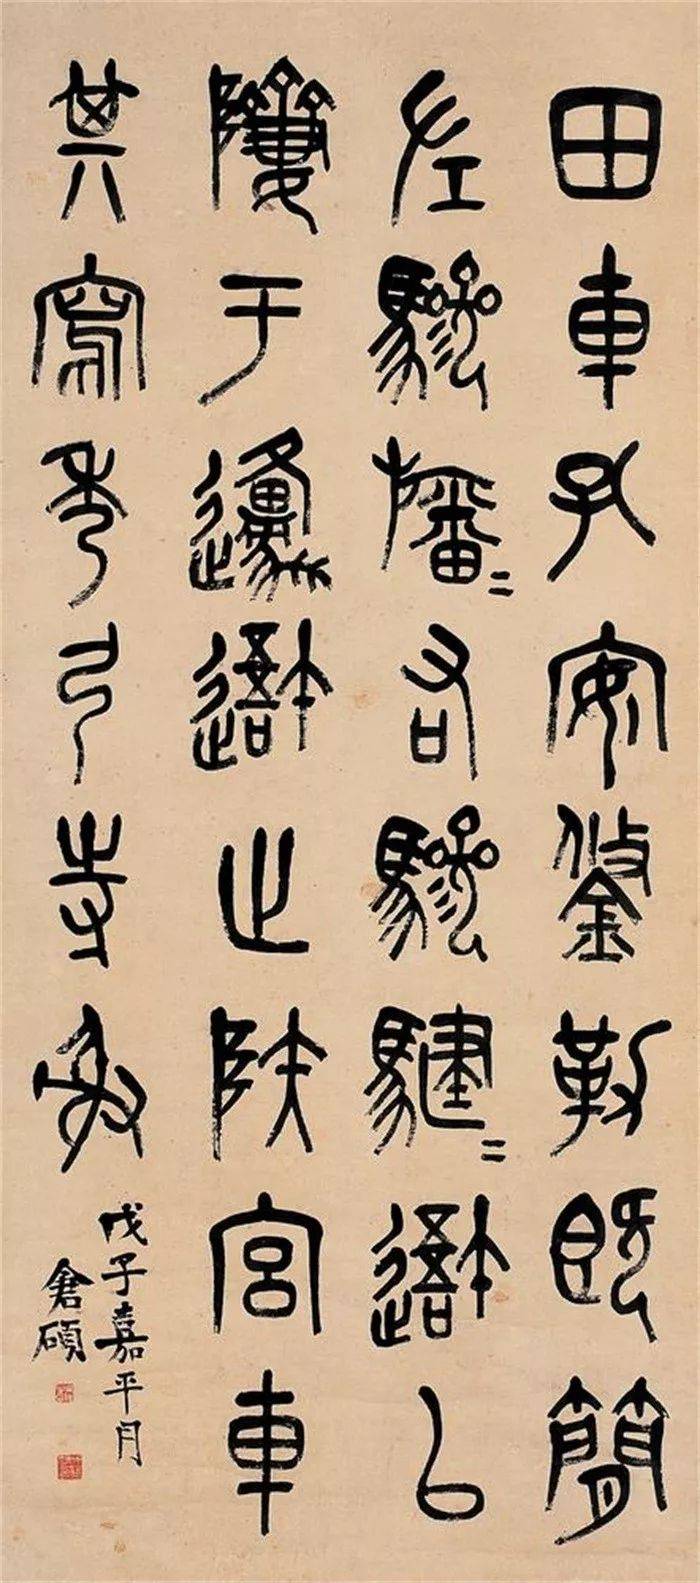 田車孔安鋚勒既簡
左驂旛=右驂騝=以
隮于邍止陝宮車
其寫秀弓寺射
戊子嘉平月
倉碩